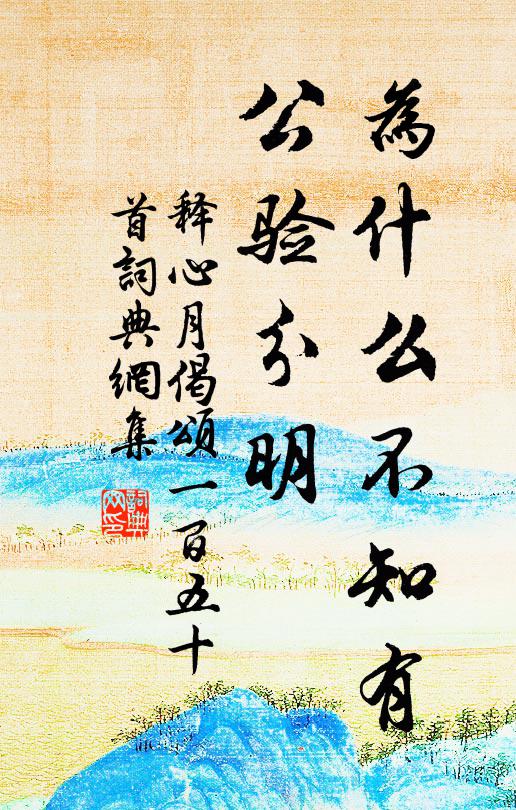 為什么不知有
公验分明
释心月偈頌一百五十
首詞典網集
詞典
网印